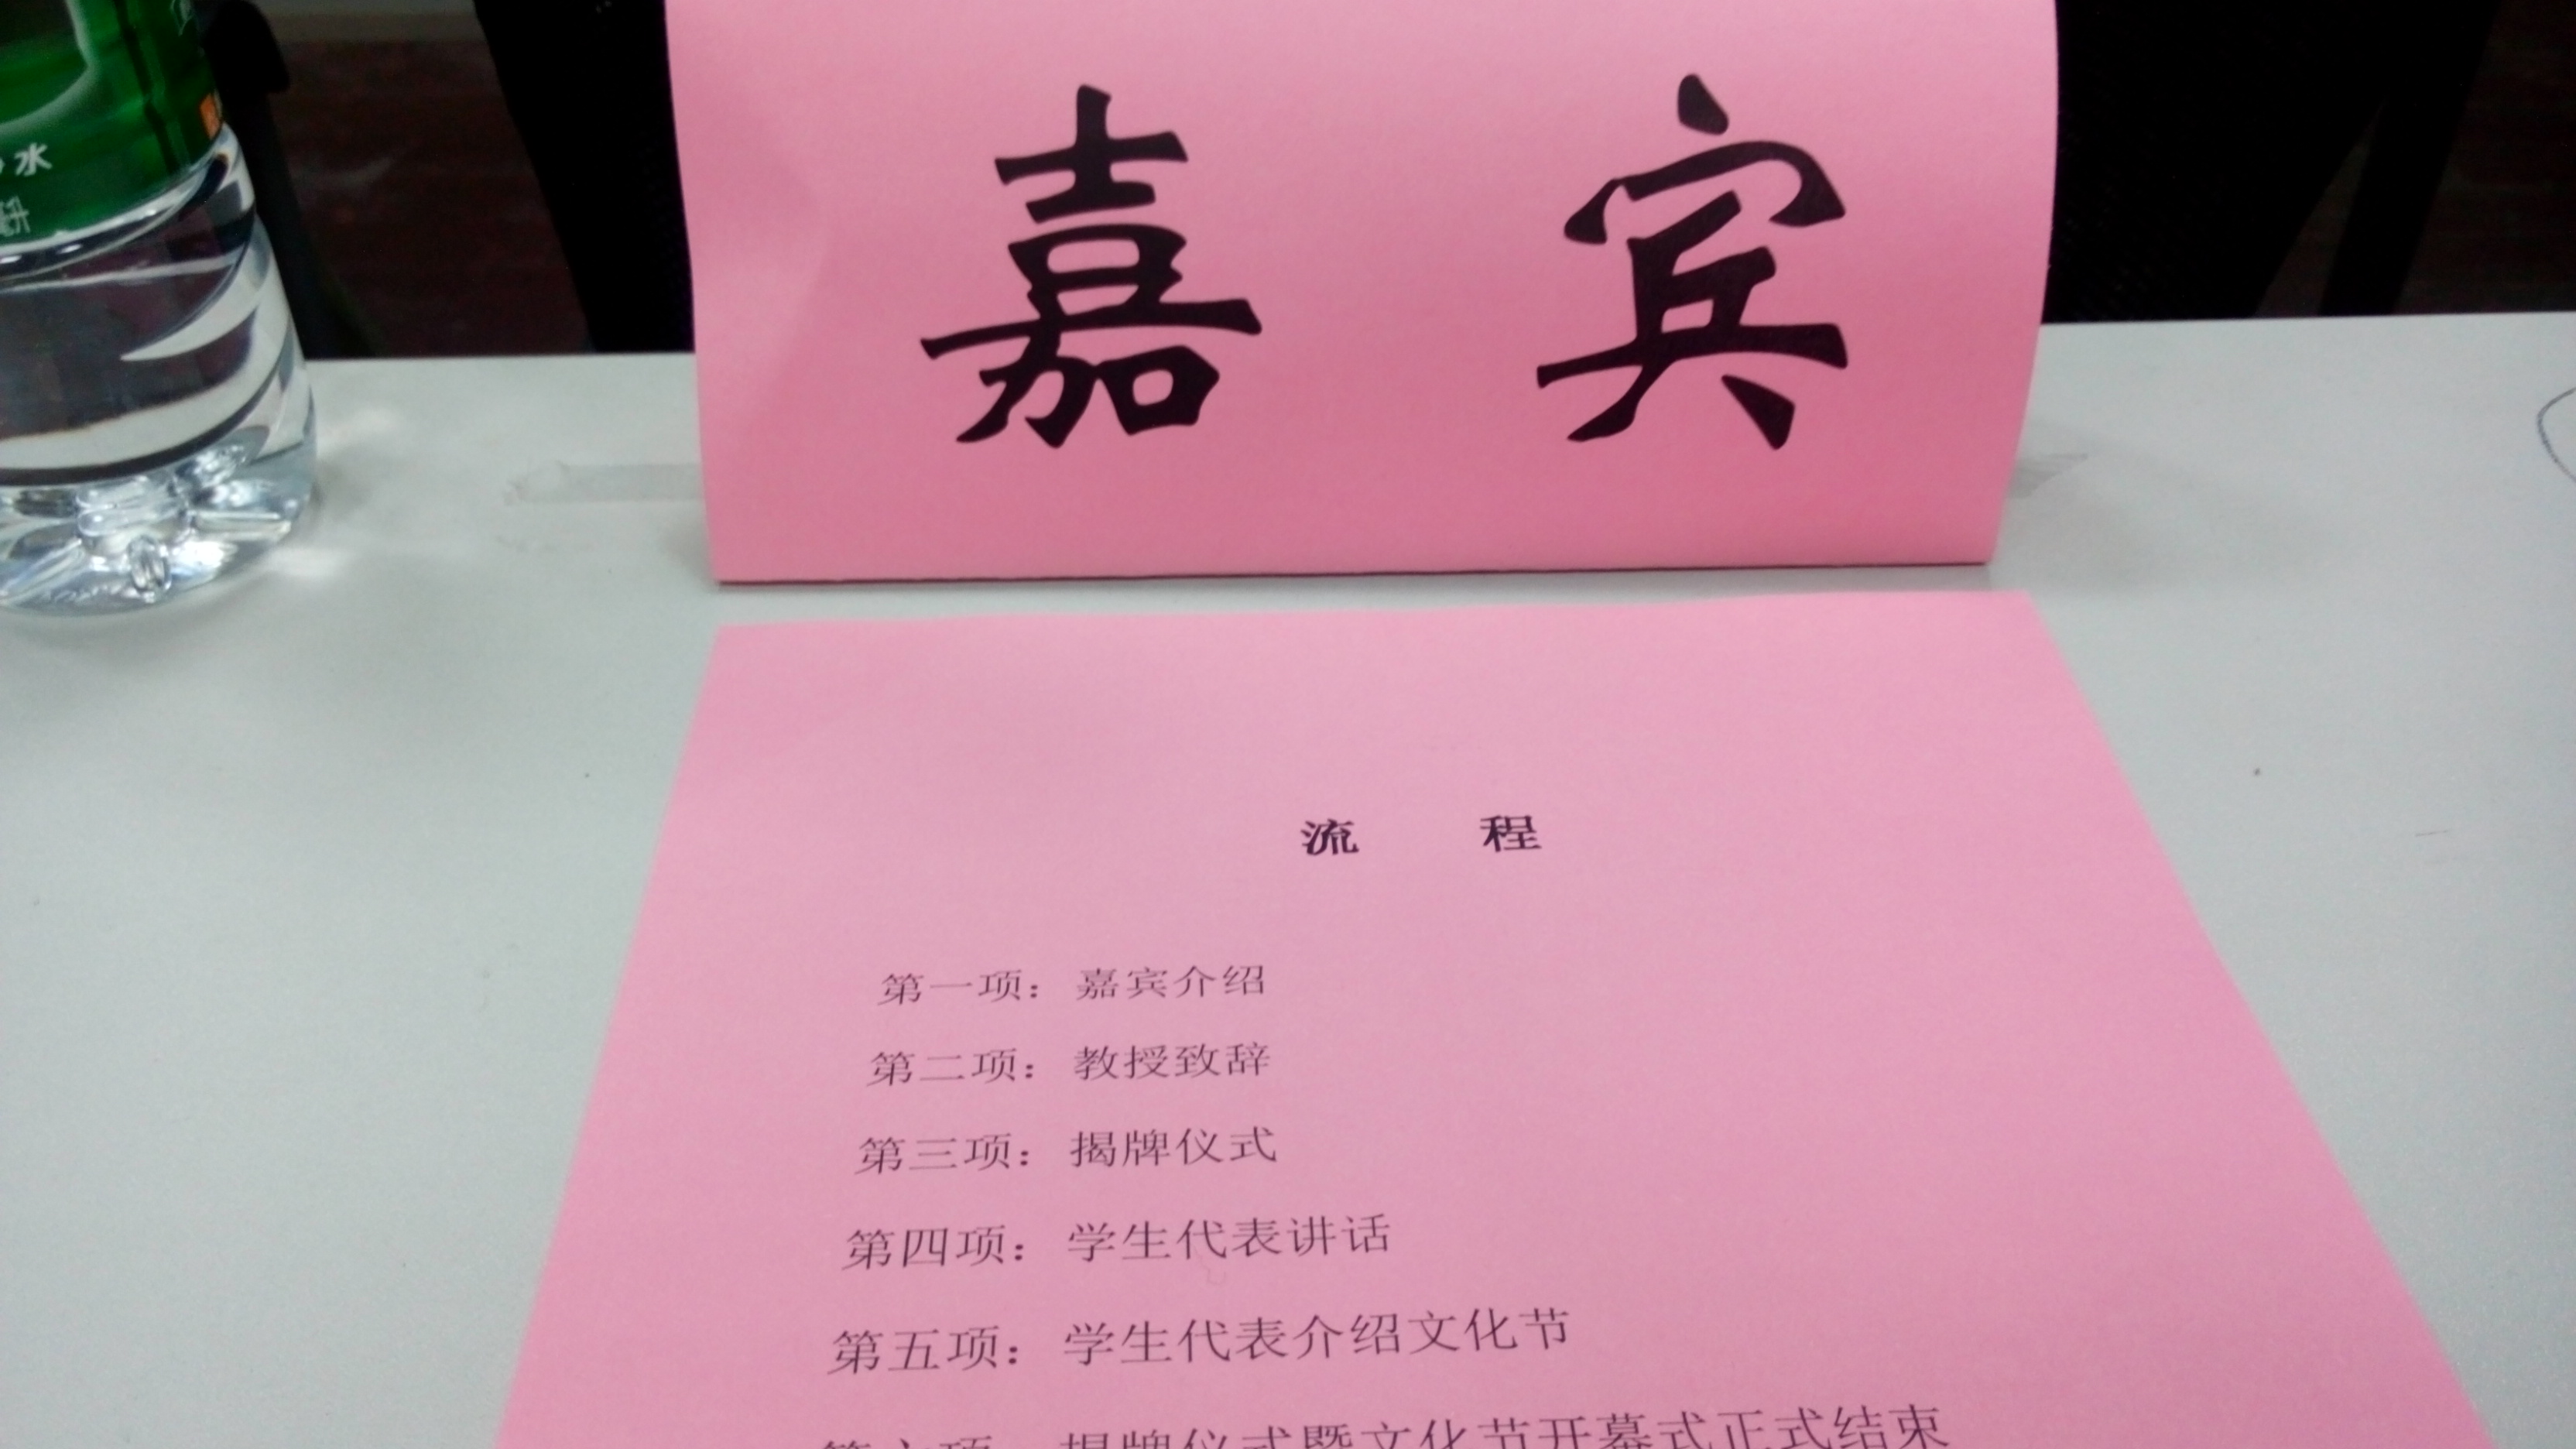 嘉 宾
水
研
流 程
第一项：嘉宾介绍
第二项：教授致辞
第三项：揭牌仪式
第四项：学生代表讲话
第五项：学生代表介绍文化节
第六项：揭牌仪式暨文化节开幕式正式结束